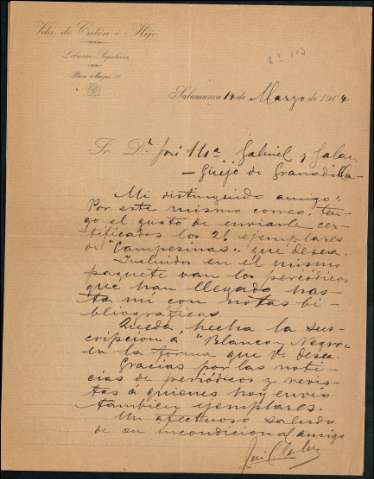 Vda. de Calón é Hijo
Librería Española
Plaza Mayor,
Salamanca 14 de Marzo de 1904
Sr. Dn. José Mª. Gabriel y Galán
Guijo de Granadilla
Mi distinguido amigo:
Por este mismo correo ten-
go el gusto de enviarle cer-
tificados los 2 ejemplares
de "Campesinas" que desea.
Incluidos en el mismo
paquete van los periódicos
que han llegado has-
ta mí con notas bi-
bliográficas
Queda hecha la sus-
cripción á "Blanco y Negro"
en la forma que V. desea.
Gracias por las noti-
cias de periódicos y revis-
tas á quienes hoy envío
también ejemplares.
Un afectuoso saludo
de su incondicional amigo